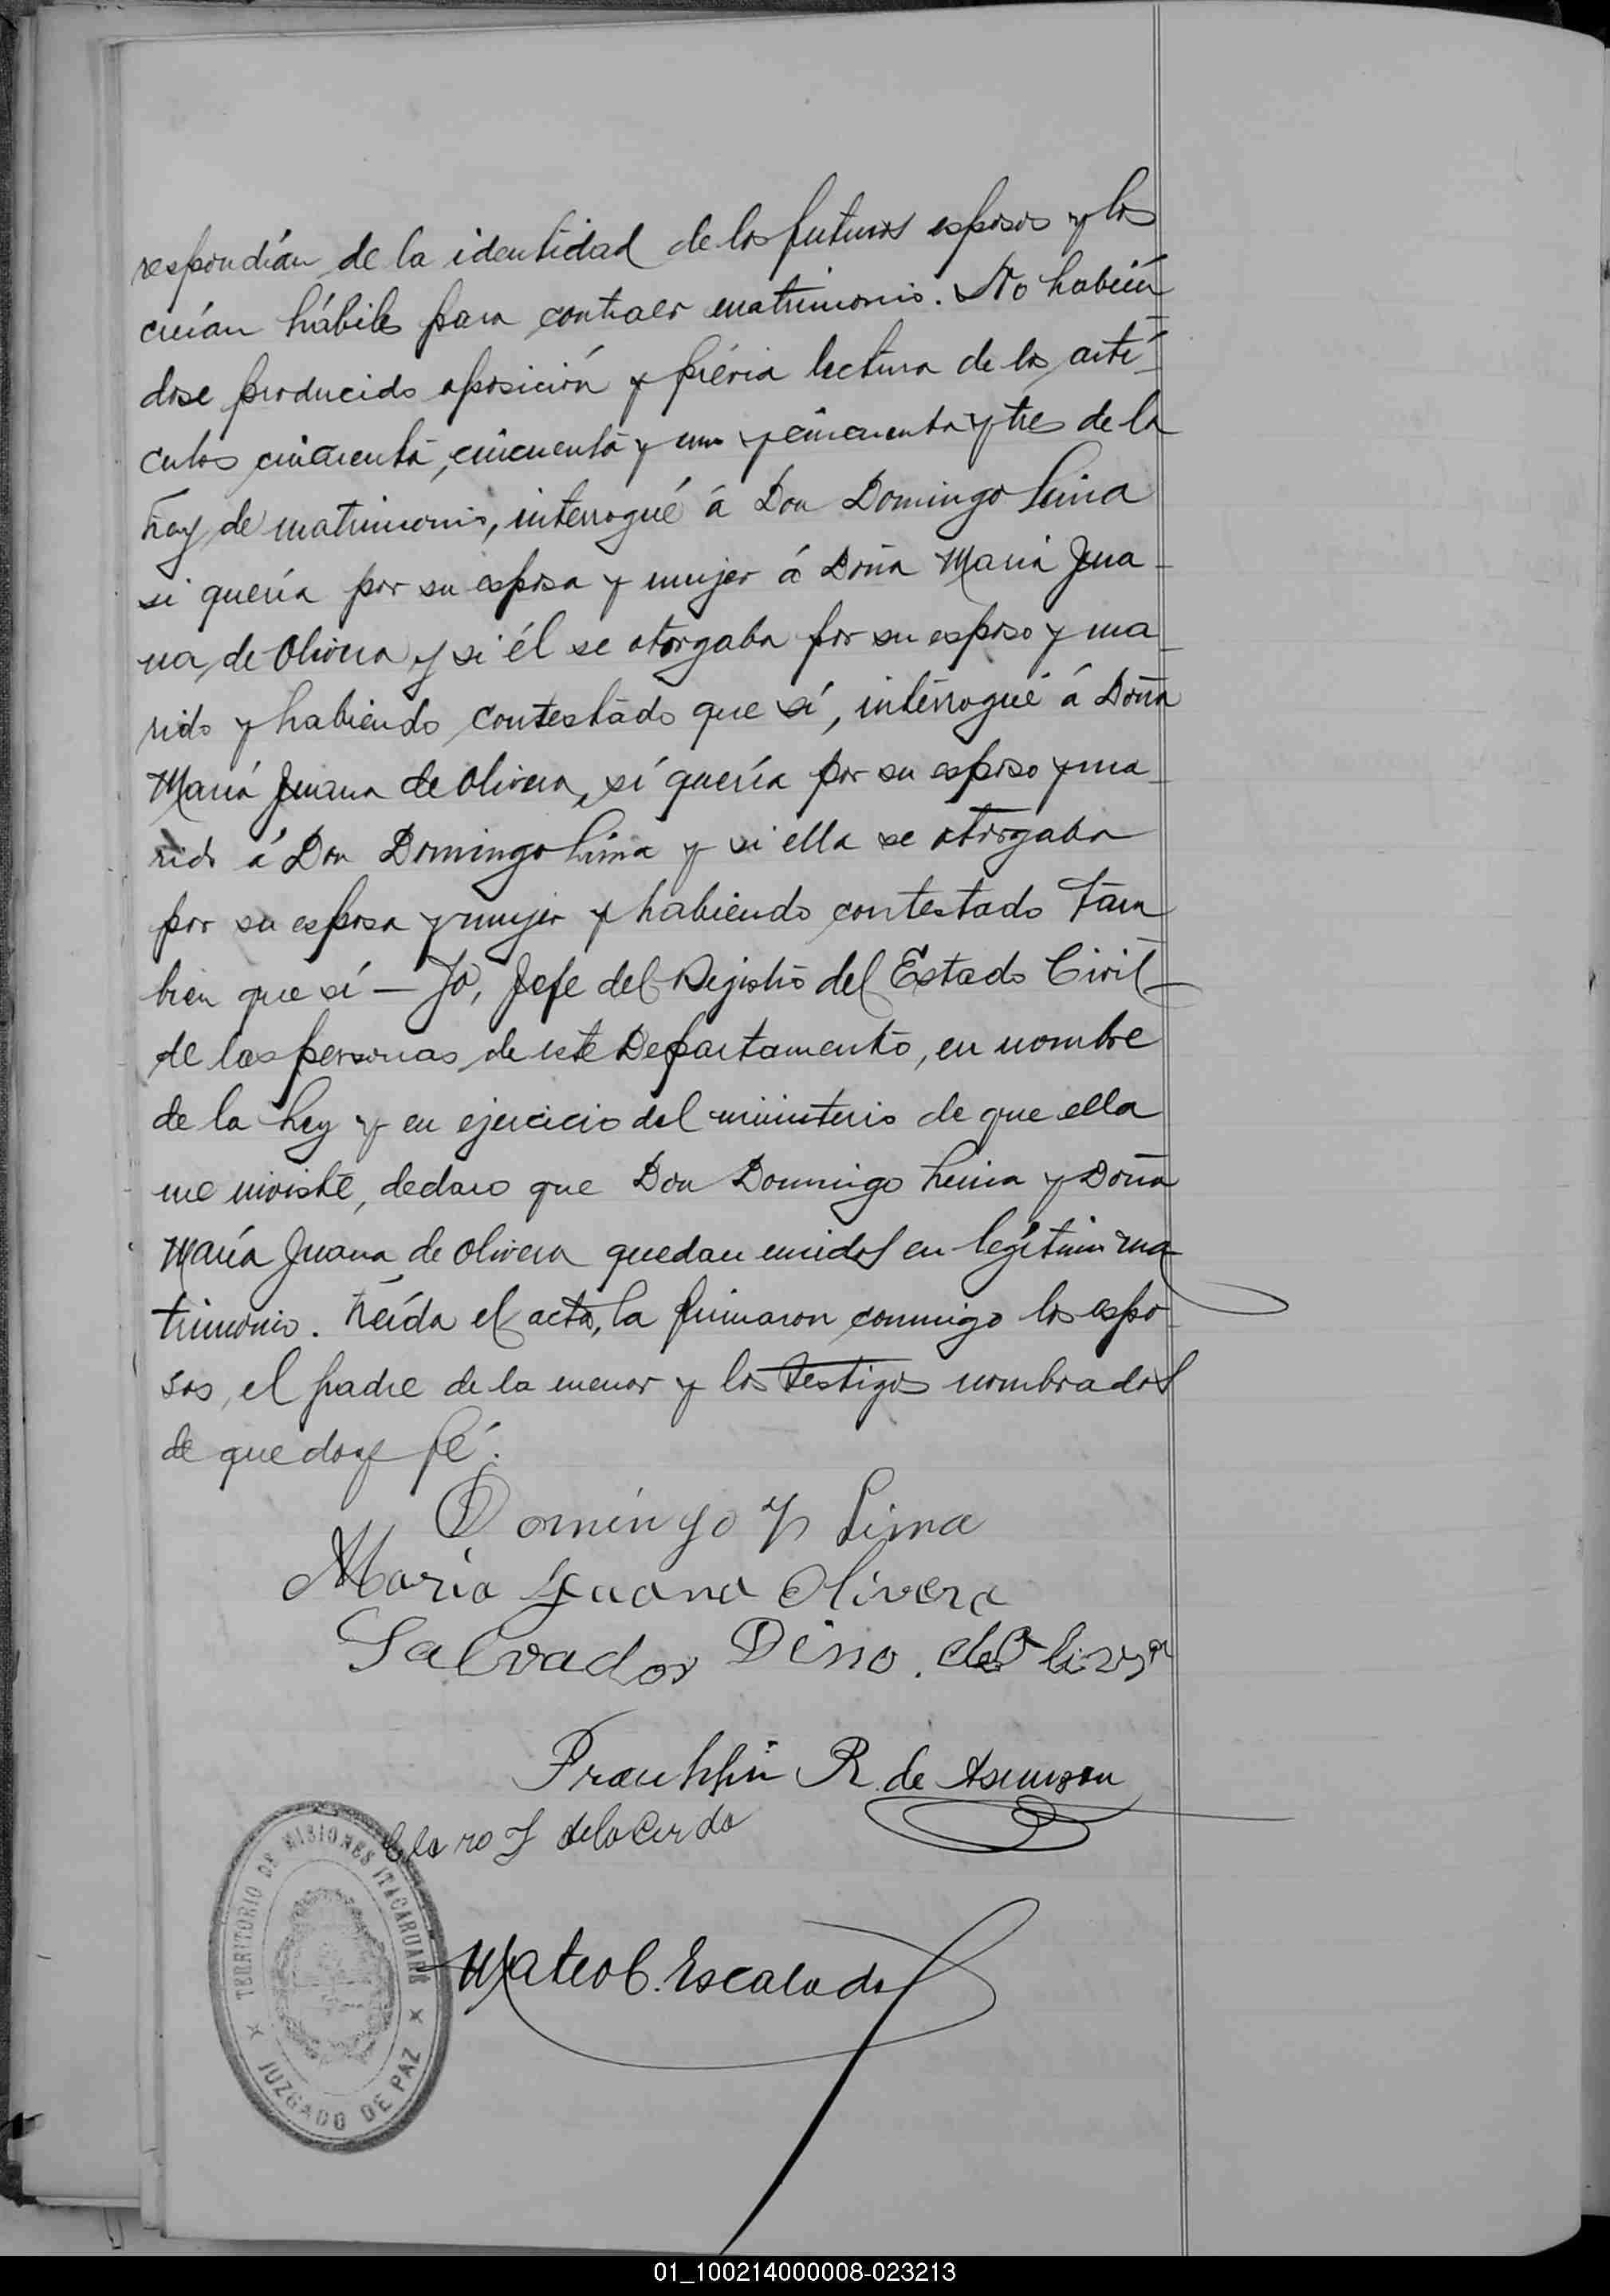 respondían de la identidad de los futuros esposos y los
creían hábiles para contraer matrimonio. No habién
dose producido oposición y prévia lectura de los artí-
culos cincuenta, cincuenta y uno y cincuenta y tres de la
Ley de matrimonio, interrogué á Don Domingo Lima
si quería por su esposa y mujer á Doña María Jua-
na de Olivera y si él se otorgaba por su esposo y ma-
rido y habiendo contestado que sí, interrogué á Doña
María Juana de Olivera, sí quería por su esposo y ma-
rido á Don Domingo Lima y si ella se otorgaba
por su esposa y mujer y habiendo contestado tam
bien que sí — Yo, Jefe del Registro del Estado Civil
de las personas de este Departamento, en nombre
de la Ley y en ejercicio del ministerio de que ella
me inviste, declaro que Don Domingo Lima y Doña
María Juana de Olivera quedan unidos en legítimo ma-
trimonio. Leída el acta, la firmaron conmigo los espo-
sos, el padre de la menor y los testigos nombrados
de que doy fé.
Domingo Lima
María Juana Olivera
Salvador Dino. de Olivera
Franklin R. de Asumzon
Claro J de la Cerda
Mateo C. Escalada
TERRITORIO DE MISIONES ITACARUARÉ
JUZGADO DE PAZ
01_100214000008-023213